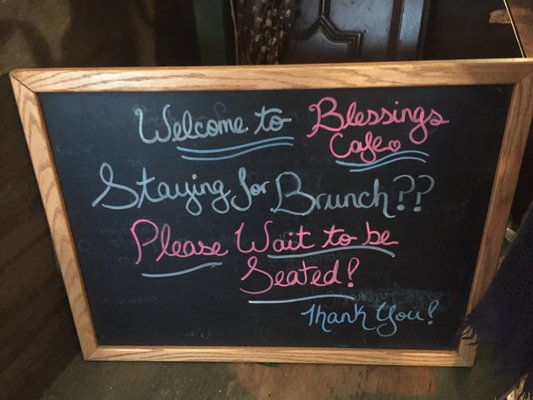 Welcome to Blessings
Cafe
Staying for Brunch??
Please Wait to be
Seated!
Thank You!